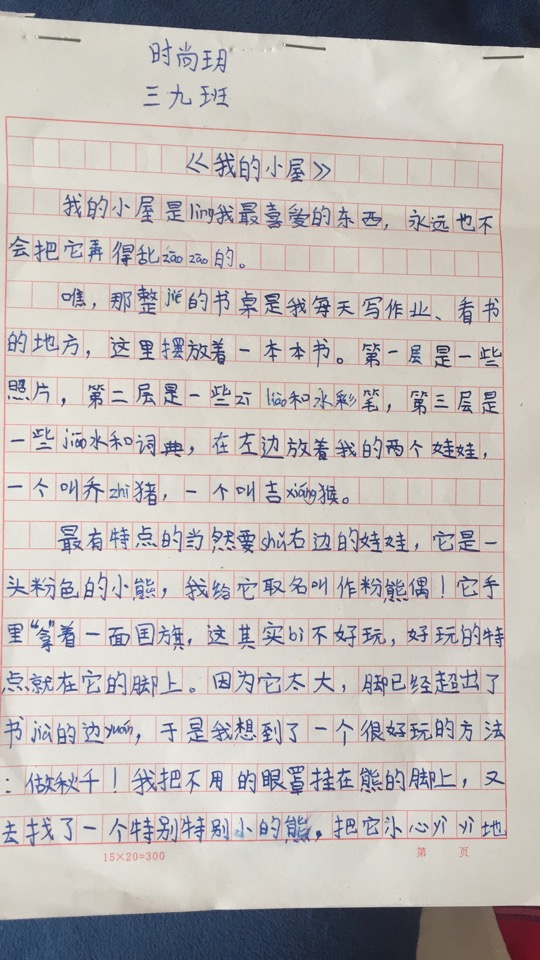 时尚玥
三九班
《我的小屋》
我的小屋是lìng我最喜爱的东西，永远也不
会把它弄得乱zāo zāo的。
瞧，那整jié的书桌是我每天写作业、看书
的地方，这里摆放着一本本书。第一层是一些
照片，第二层是一些zī liào和水彩笔，第三层是
一些jiāo水和词典，在左边放着我的两个娃娃，
一个叫乔zhì猪，一个叫吉xiáng猴。
最有特点的当然要shǔ右边的娃娃，它是一
头粉色的小熊，我给它取名叫作粉熊偶！它手
里“拿”着一面国旗，这其实bì不好玩，好玩的特
点就在它的脚上。因为它太大，脚已经超出了
书jià的边yuán，于是我想到了一个很好玩的方法
：做秋千！我把不用的眼罩挂在熊的脚上，又
去找了一个特别特别小的熊，把它小心yì yì地
15×20=300
第 页